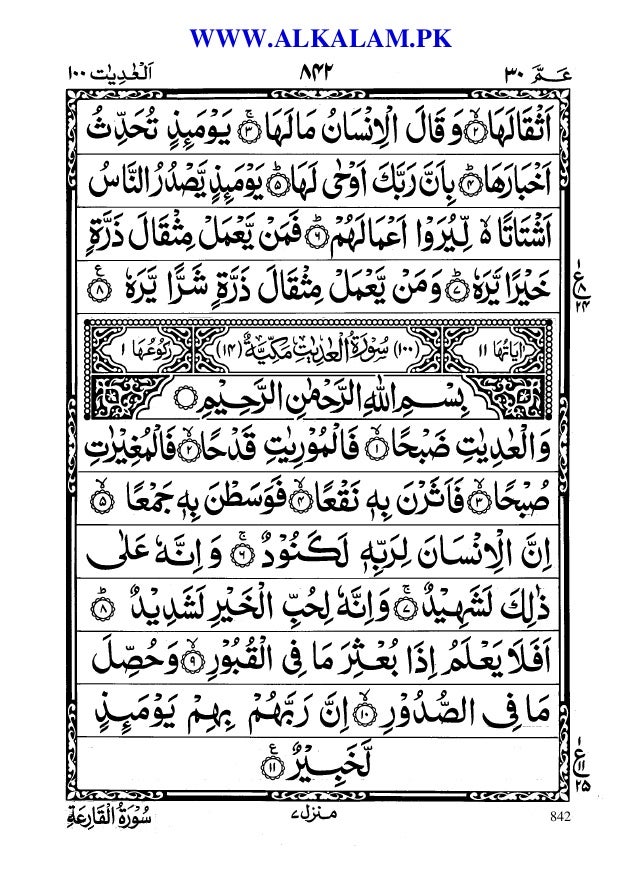 WWW.ALKALAM.PK
عَمَّ ٣٠ ٨٤٢ اَلْعٰدِيٰت ١٠٠
اَثْقَالَهَا ۙ﴿٢﴾ وَ قَالَ الْاِنْسَانُ مَا لَهَا ۚ﴿٣﴾ يَوْمَئِذٍ تُحَدِّثُ
اَخْبَارَهَا ؕ﴿٤﴾ بِاَنَّ رَبَّكَ اَوْحٰى لَهَا ؕ﴿٥﴾ يَوْمَئِذٍ يَّصْدُرُ النَّاسُ
اَشْتَاتًا ۙ۬ لِّيُرَوْا اَعْمَالَهُمْ ؕ﴿٦﴾ فَمَنْ يَّعْمَلْ مِثْقَالَ ذَرَّةٍ
خَيْرًا يَّرَهٗ ؕ﴿٧﴾ وَ مَنْ يَّعْمَلْ مِثْقَالَ ذَرَّةٍ شَرًّا يَّرَهٗ ﴿٨﴾ع
١
ع
٨
٢٤
اٰيَاتُهَا ١١ (١٠٠) سُوْرَةُ الْعٰدِيٰتِ مَكِّيَّةٌ (١٤) رُكُوْعُهَا ١
بِسْمِ اللّٰهِ الرَّحْمٰنِ الرَّحِيْمِ
وَ الْعٰدِيٰتِ ضَبْحًا ۙ﴿١﴾ فَالْمُوْرِيٰتِ قَدْحًا ۙ﴿٢﴾ فَالْمُغِيْرٰتِ
صُبْحًا ۙ﴿٣﴾ فَاَثَرْنَ بِهٖ نَقْعًا ۙ﴿٤﴾ فَوَسَطْنَ بِهٖ جَمْعًا ۙ﴿٥﴾
اِنَّ الْاِنْسَانَ لِرَبِّهٖ لَكَنُوْدٌ ۚ﴿٦﴾ وَ اِنَّهٗ عَلٰى
ذٰلِكَ لَشَهِيْدٌ ۚ﴿٧﴾ وَ اِنَّهٗ لِحُبِّ الْخَيْرِ لَشَدِيْدٌ ؕ﴿٨﴾
اَفَلَا يَعْلَمُ اِذَا بُعْثِرَ مَا فِى الْقُبُوْرِ ۙ﴿٩﴾ وَ حُصِّلَ
مَا فِى الصُّدُوْرِ ۙ﴿١٠﴾ اِنَّ رَبَّهُمْ بِهِمْ يَوْمَئِذٍ
لَّخَبِيْرٌ ﴿١١﴾ع
١
ع
١١
٢٥
842 منزل ٧ سُوْرَةُ الْقَارِعَةِ